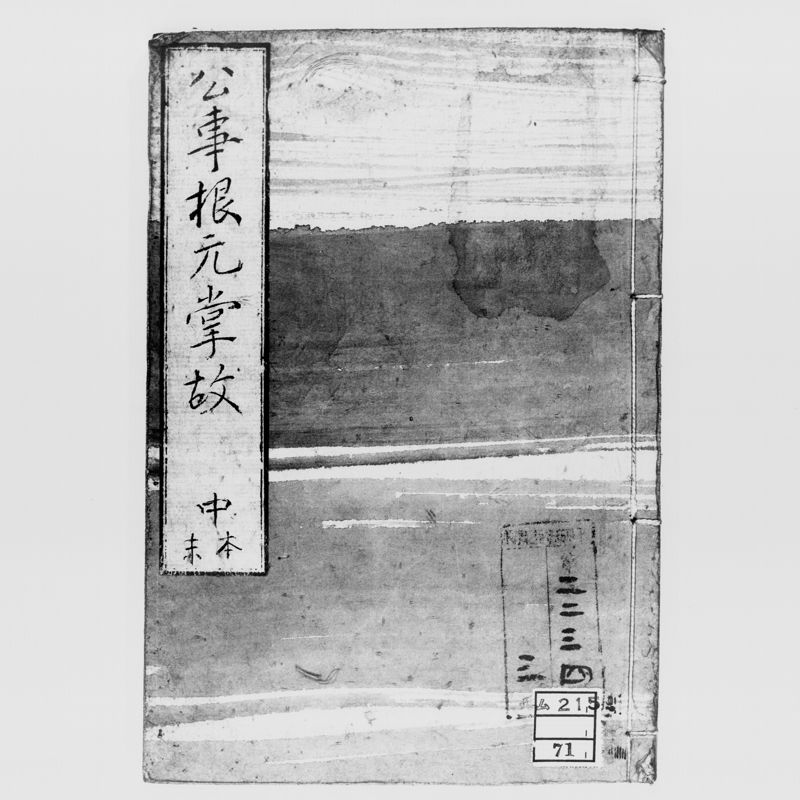 公事根元掌故
中
本
末
二二三四
三
ム215
71